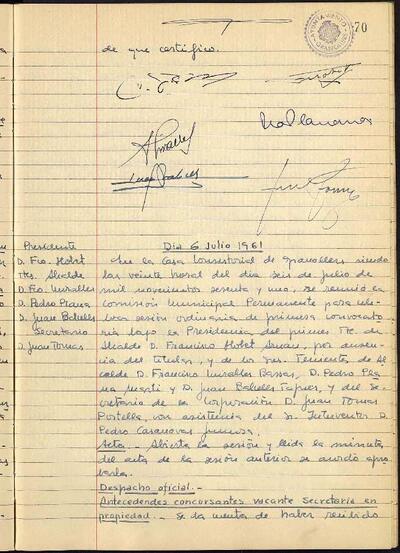 70
AYUNTAMIENTO
GRANOLLERS
de que certifico.
Día 6 Julio 1961
Presidente
D. Fco. Llobet
Tte. Alcalde
D. Fco. Muralles
D. Pedro Plana
D. Juan Batlles
Secretario
D. Juan Tomas
En la Casa Consistorial de Granollers siendo
las veinte horas del día seis de julio de
mil novecientos sesenta y uno, se reunió la
Comisión Municipal Permanente para cele-
brar sesión ordinaria de primera convocato-
ria bajo la Presidencia del primer Tte. de
Alcalde D. Francisco Llobet, por ausen-
cia del titular, y de los Sres. Tenientes de Al
calde D. Francisco Muralles Bassas, D. Pedro Pla
na Martí y D. Juan Batlles, y del Se-
cretario de la Corporación D. Juan Tomas
Portella, con asistencia del Sr. Interventor D.
Pedro Casanovas
Acta.- Abierta la sesión y leída la minuta
del acta de la sesión anterior se acordó apro
barla.
Despacho oficial.-
Antecedentes concursantes vacante Secretaría en
propiedad.- Se da cuenta de haber recibido